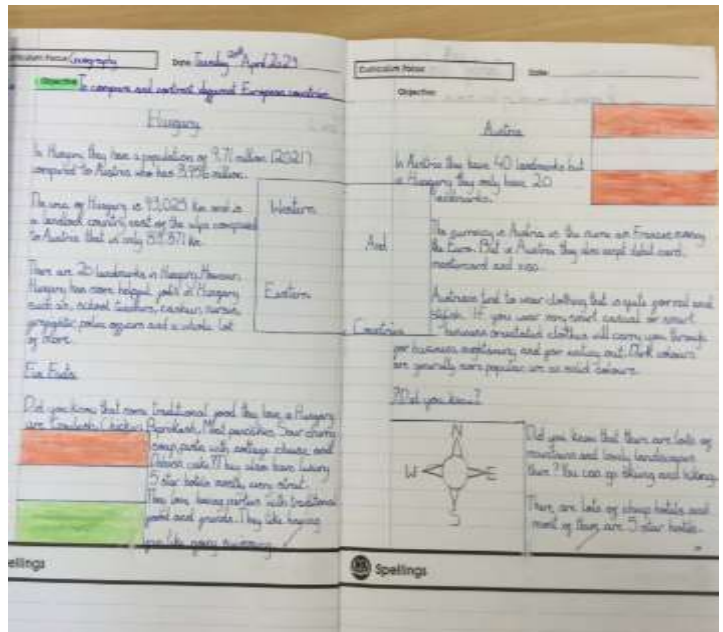 Curriculum Focus Geography Date Tuesday April
Objective To compare and contrast different European countries
Hungary
In Hungary they have a population of 9.71 million (2021)
compared to Austria who has 8.956 million.
The area of Hungary is 93,025 km and is
a landlock country east of the alps compared
to Austria that is only
There are 20 landmarks in Hungary. However
Hungary has some helpful jobs in Hungary
such as, school teachers, nurses
police officers and a whole lot
of more.
Fun Facts
Did you know that some traditional food they have in Hungary
are Goulash, Chicken Paprikash, Meat pancakes, Sour cherry
soup, pasta with cottage cheese, and
cake?? They also have luxury
5 star hotels nearly every street.
They love having parties with traditional
food and friends. They like having
fun like going swimming
Spellings
Western
Eastern
And
Countries
Curriculum Focus Date
Objective
Austria
In Austria they have 40 landmarks but
in Hungary they only have 20
landmarks.
The currency in Austria is the same as France
the Euro. But in Austria they also accept debit card,
mastercard and visa.
Austrians tend to wear clothing that is quite formal and
stylish. If you wear smart casual or smart
business orientated clothes will carry you through
for business and for eating out. Dark colours
are generally more popular as solid colours.
?Did you know?
N
W E
S
Did you know that there are lots of
mountains and lovely landscapes
there? You can go skiing and hiking.
There are lots of cheap hotels and
most of them are 5 star hotels.
Spellings